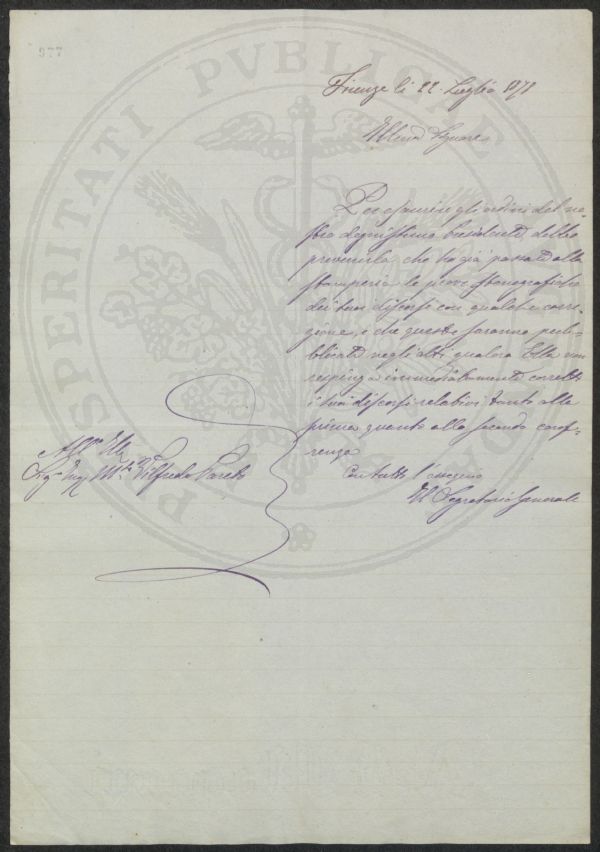 977
PROSPERITATI PVBLICAE
Firenze li 22 Luglio 1878
Illmo Signore
Per eseguire gli ordini del no-
stro degnissimo Presidente, debbo
prevenirla che ho già passato alla
stamperia le prove stenografiche
dei suoi discorsi con qualche corre-
zione, e che queste saranno pub-
blicate negli atti qualora Ella non
respinga immediatamente corretti
i suoi discorsi relativi tanto alla
prima quanto alla seconda confe-
renza
Con tutto l'ossequio
Il Segretario Generale
All'
Sigr Ingr Vilfredo Pareto